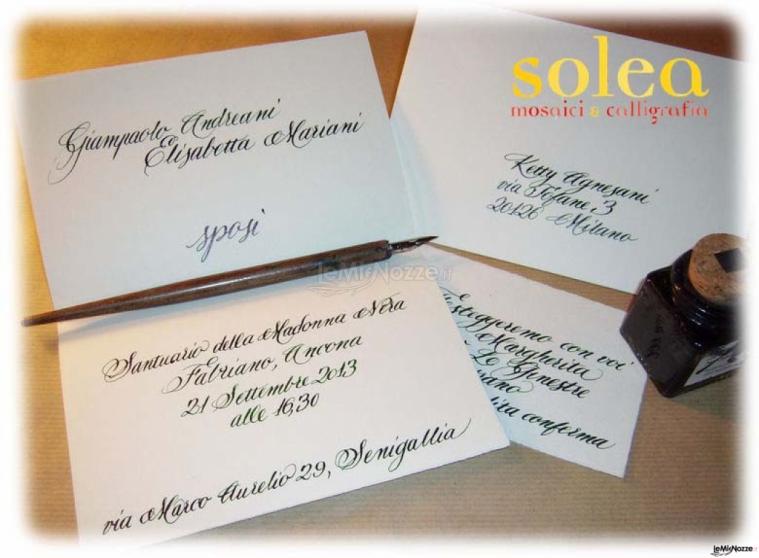 solea
mosaici & calligrafia
Giampaolo Andreani
Elisabetta Mariani
sposi
Ketty Agnesani
via Tofane 3
20126 Milano
LeMieNozze.it
Santuario della Madonna Nera
Fabriano, Ancona
21 Settembre 2013
alle 16,30
via Marco Aurelio 29, Senigallia
e
festeggeremo con voi
Margherita
Le Ginestre
conferma
LeMieNozze.it